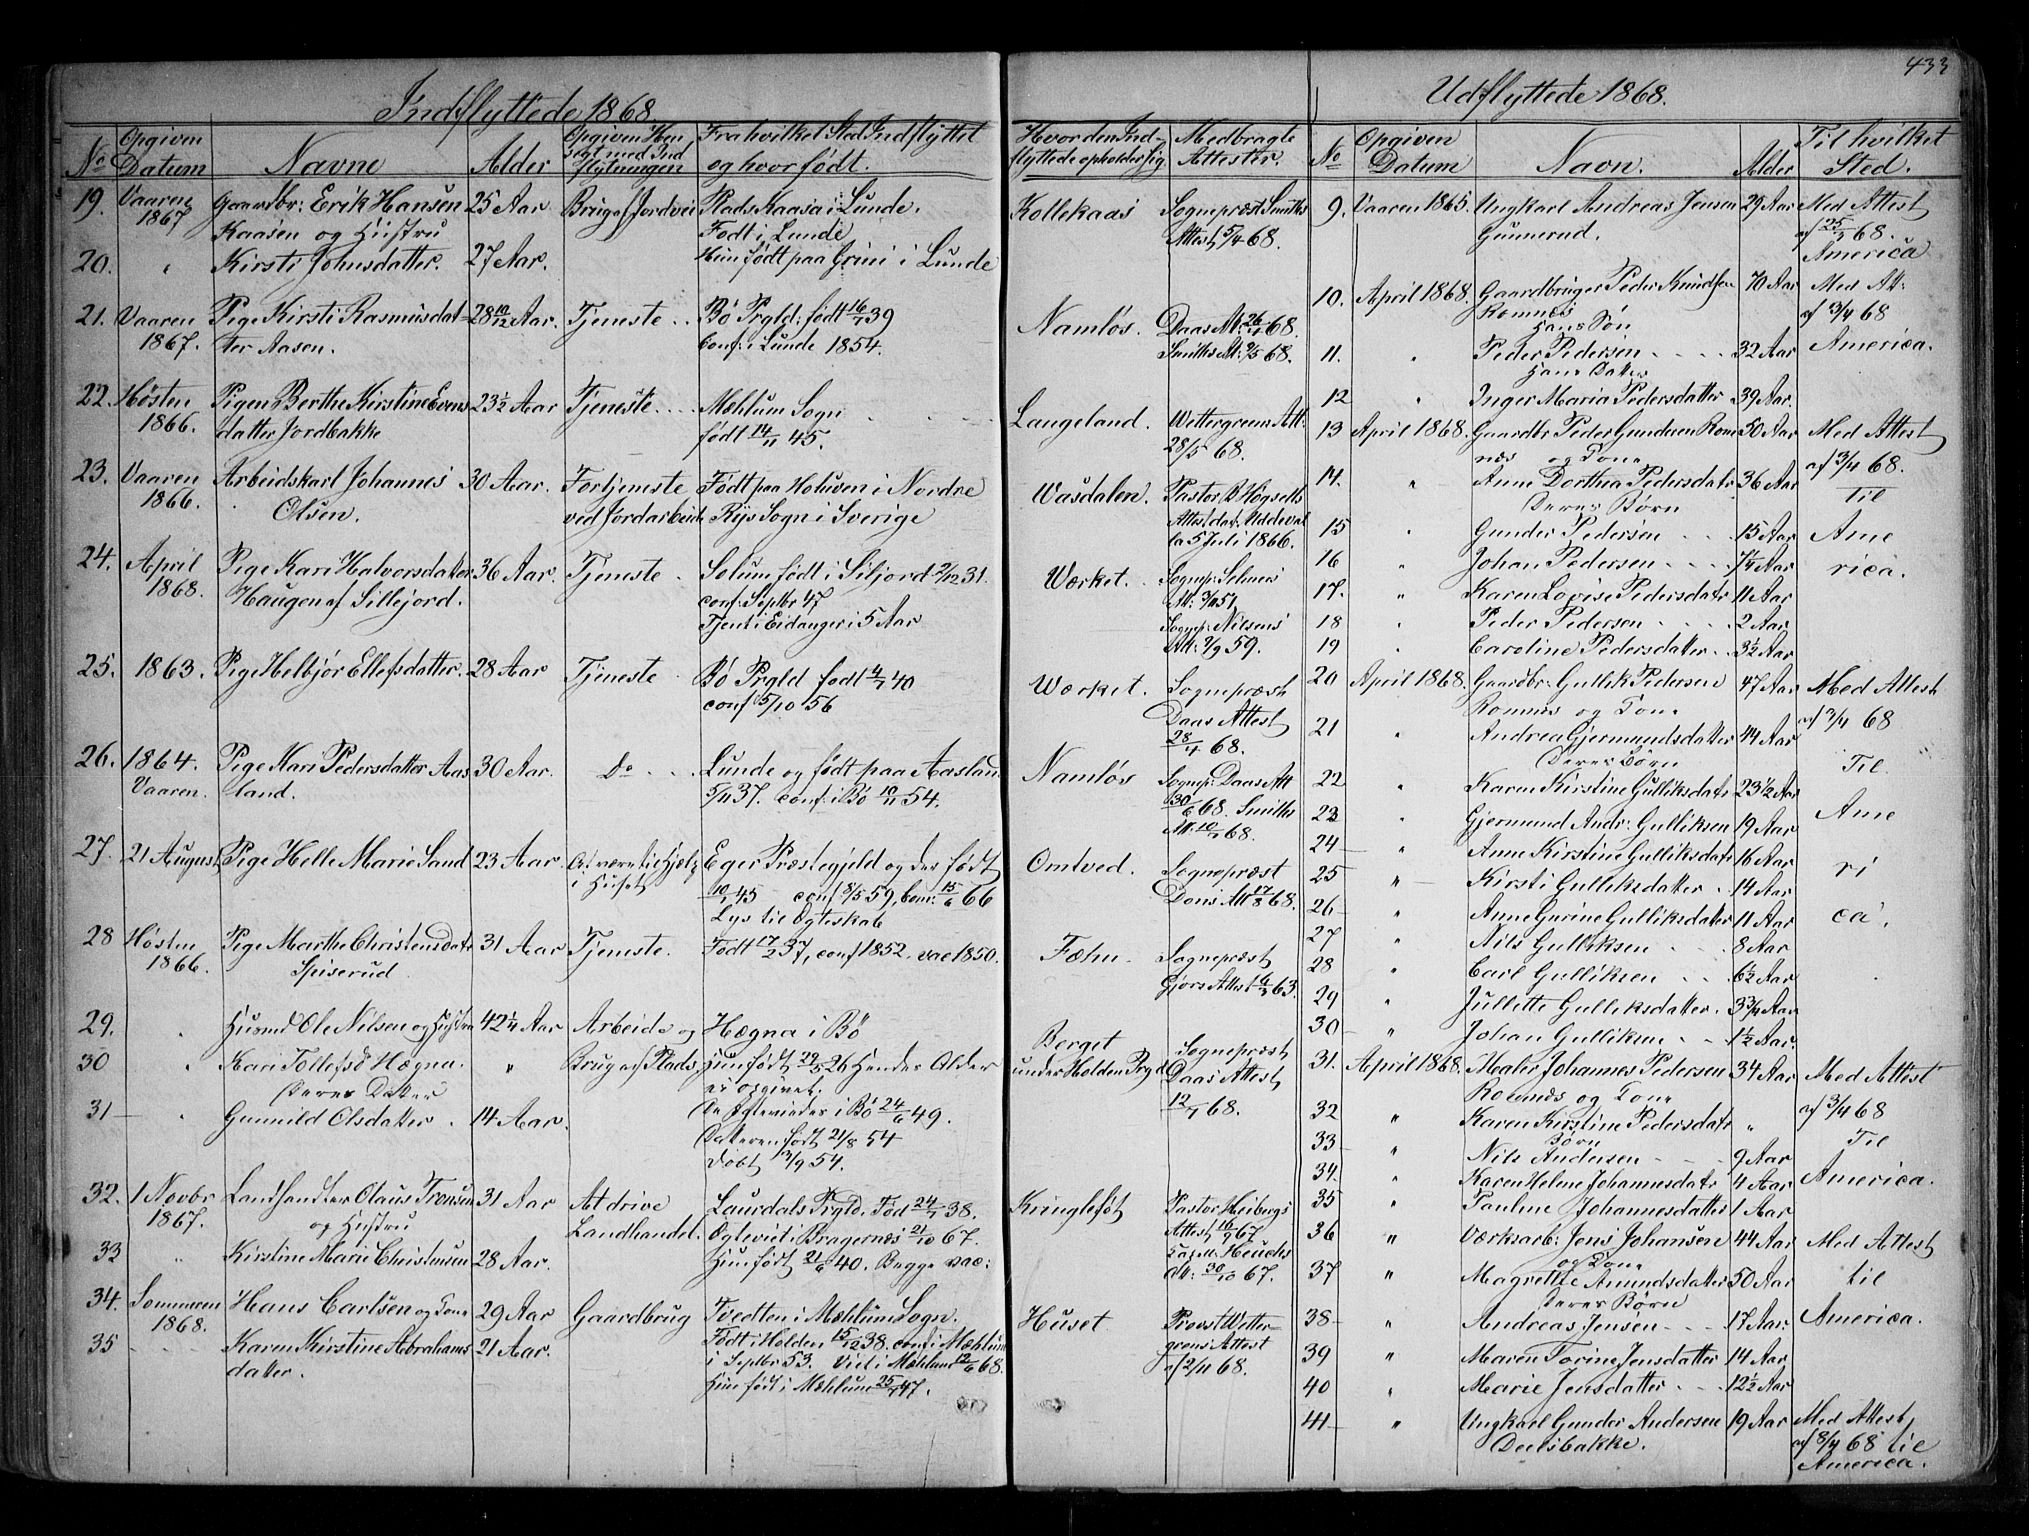 433
Indflyttede 1868
No
Opgiven Datum
Navne
Alder
Opgiven Hensigt med Indflytningen
Fra hvilket Sted Indflyttet og hvor født.
Hvor den Indflyttede opholder sig.
Medbragte Attester.
19. Vaaren 1867 Gaardbr: Erik Hansen Kaasen og Hustru 25 Aar Brug af Jordvei Plads Kaasa i Lunde. Født i Lunde Kollekaas Sognepræst Smiths Attest 5/4 68.
20. " Kirsti Johnsdatter. 27 Aar. Hun født paa Grini i Lunde
21. Vaaren 1867. Pige Kirsti Rasmusdatter Aasen. 28 10/12 Aar. Tjeneste Bø Prgld: født 16/7 39 conf: i Lunde 1854. Namløs. Daas At: 26/1 68. Smiths At: 2/5 68.
22. Høsten 1866. Pigen Berthe Kirstine Evensdatter Jordbakke 23 1/2 Aar Tjeneste Mæhlum Sogn født 14/11 45. Langeland. Wettergreens Att: 28/5 68.
23. Vaaren 1866. Arbeidskarl Johannes Olsen. 30 Aar. Fortjeneste ved Jordarbeide Født paa Holuven i Nordre Rys Sogn i Sverige Vasdalen. Pastor B Högsetts Attest dat: Uddevalla 5 Juli 1866.
24. April 1868. Pige Kari Halvorsdatter Haugen af Sillejord. 36 Aar. Tjeneste Solum født i Siljord 2/12 31. conf: Septbr 47 Tjent i Eidanger i 5 Aar Værket. Sognep: Selmers Att: 3/11 51 Sognep: Nilsens Att: 2/9 59.
25. 1863. Pige Helbjør Ellefsdatter. 28 Aar Tjeneste Bø Prgld født 4/7 40 conf 5/10 56 Værket. Sognepræst Daas Attest 28/4 68.
26. 1864. Vaaren. Pige Kari Pedersdatter Aasland. 30 Aar. Do Lunde og født paa Aasland 5/11 37. conf: i Bø 10/11 54. Namløs Sognep: Daas Att 30/6 68. Smiths Att. 10/7 68.
27. 21 August Pige Helle Marie Sand 23 Aar. At være til Hjælp i Huset Eger Præstegjeld og der født 10/1 45 conf 8/5 59, Com: 15/6 66 Lys til Ægteskab Omtved. Sognepræst Dons At 17/8 68.
28 Høsten 1866. Pige Marthe Christensdatr Spiserud 31 Aar Tjeneste. Født 17/2 37, conf 1852. vac 1850. Fæhn. Sognepræst Gjørs Attest 6/3 63.
29. " Husmd Ole Nilsen og Hustru 42 1/4 Aar Arbeide og Hægna i Bø Berget under Holden Prgd Sognepræst Daas Attest 12/7 68.
30 " Kari Tollefsd Hægna. " Brug af Plads Hun født 29/5 26 Hendes Alder er opgivet.
Deres Datter
31 " Gunnild Olsdatter. 14 Aar. De Ægteviedes i Bø 24/6 49. Datteren født 21/8 54 døbt 3/9 54.
32. 1 Novbr 1867. Landhandler Olaus Tronsen og Hustru 31 Aar At drive Landhandel. Laurdals Prgld. Fød 24/7 38. Ægteviet i Bragernæs 21/10 67. Kringlefot Pastor Heibergs Attest 16/9 67
33 " Kirstine Marie Christensen 28 Aar. Hun født 21/6 40. Begge vac: Att: 30/10 67.
34. Sommeren 1868. Hans Carlsen og Kone 29 Aar Gaardbrug Tvedten i Mæhlum Sogn. Født i Holden 15/12 38. conf i Mæhlum i Septbr 53. Viet i Mæhlum 12/6 68. Huset Provst Wettergrens Attest af 2/11 68.
35 Karen Kirstine Abrahamsdatter. 21 Aar. Hun født i Mæhlum 25/7 47.
Udflyttede 1868.
No
Opgiven Datum
Navn.
Alder
Til hvilket Sted.
9. Vaaren 1865. Ungkarl Andreas Jensen Gunnerud. 29 Aar Med Attest af 25/2 68. America
10. April 1868. Gaardbruger Peder Knudsen Romnæs 70 Aar Med At: af 3/4 68 America.
Hans Søn
11. " Peder Pedersen 32 Aar
Hans Datter
12 " Inger Maria Pedersdatter 39 Aar.
13 April 1868. Gaardbr Peder Gundersen Romnæs og Kone 50 Aar Med Attest af 3/4 68. Til America.
14. " Anne Dorthea Pedersdatr 36 Aar
Deres Børn
15 " Gunder Pedersen 15 Aar
16 " Johan Pedersen 7 1/4 Aar
17. " Karen Lovise Pedersdatr 11 Aar
18 " Peder Pedersen 2 Aar
19 " Caroline Pedersdatter 3 1/2 Aar
20 April 1868. Gaardbr: Gullik Pedersen Romnæs og Kone 47 Aar Med Attest af 3/4 68 Til America.
21 " Andrea Gjermundsdatter 44 Aar
Deres Børn
22 " Karen Kirstine Gulliksdatr 23 1/2 Aar
23 " Gjermund Andr: Gulliksen 19 Aar
24 " Anne Kirstine Gulliksdatr 16 Aar
25 " Kirsti Gulliksdatter 14 Aar
26 " Anne Gurine Gulliksdatter 11 Aar
27 " Nils Gulliksen 8 Aar
28 " Carl Gulliksen 6 1/2 Aar
29 " Jullette Gulliksdatter. 3 3/4 Aar
30 " Johan Gulliksen 1 1/2 Aar.
31. April 1868. Maler Johannes Pedersen Romnæs og Kone 34 Aar Med Attest af 3/4 68 Til America.
32 " Karen Kirstine Pedersdatr "
Børn
33 " Nils Andersen 9 Aar
34. Karen Helene Johannesdatr 4 Aar
35 " Pauline Johannesdatter 1 Aar
36 " Værksarb: Jens Johansen og Kone 44 Aar Med Attest til America.
37 " Magrethe Amundsdatter 50 Aar
Deres Børn
38 " Andreas Jensen 17 Aar
39 " Maren Torine Jensdatter 14 Aar
40 " Marie Jensdatter 12 1/2 Aar
41 " Ungkarl Gunder Andersen Deelsbakke. 19 Aar Med Attest af 8/4 68 til America.